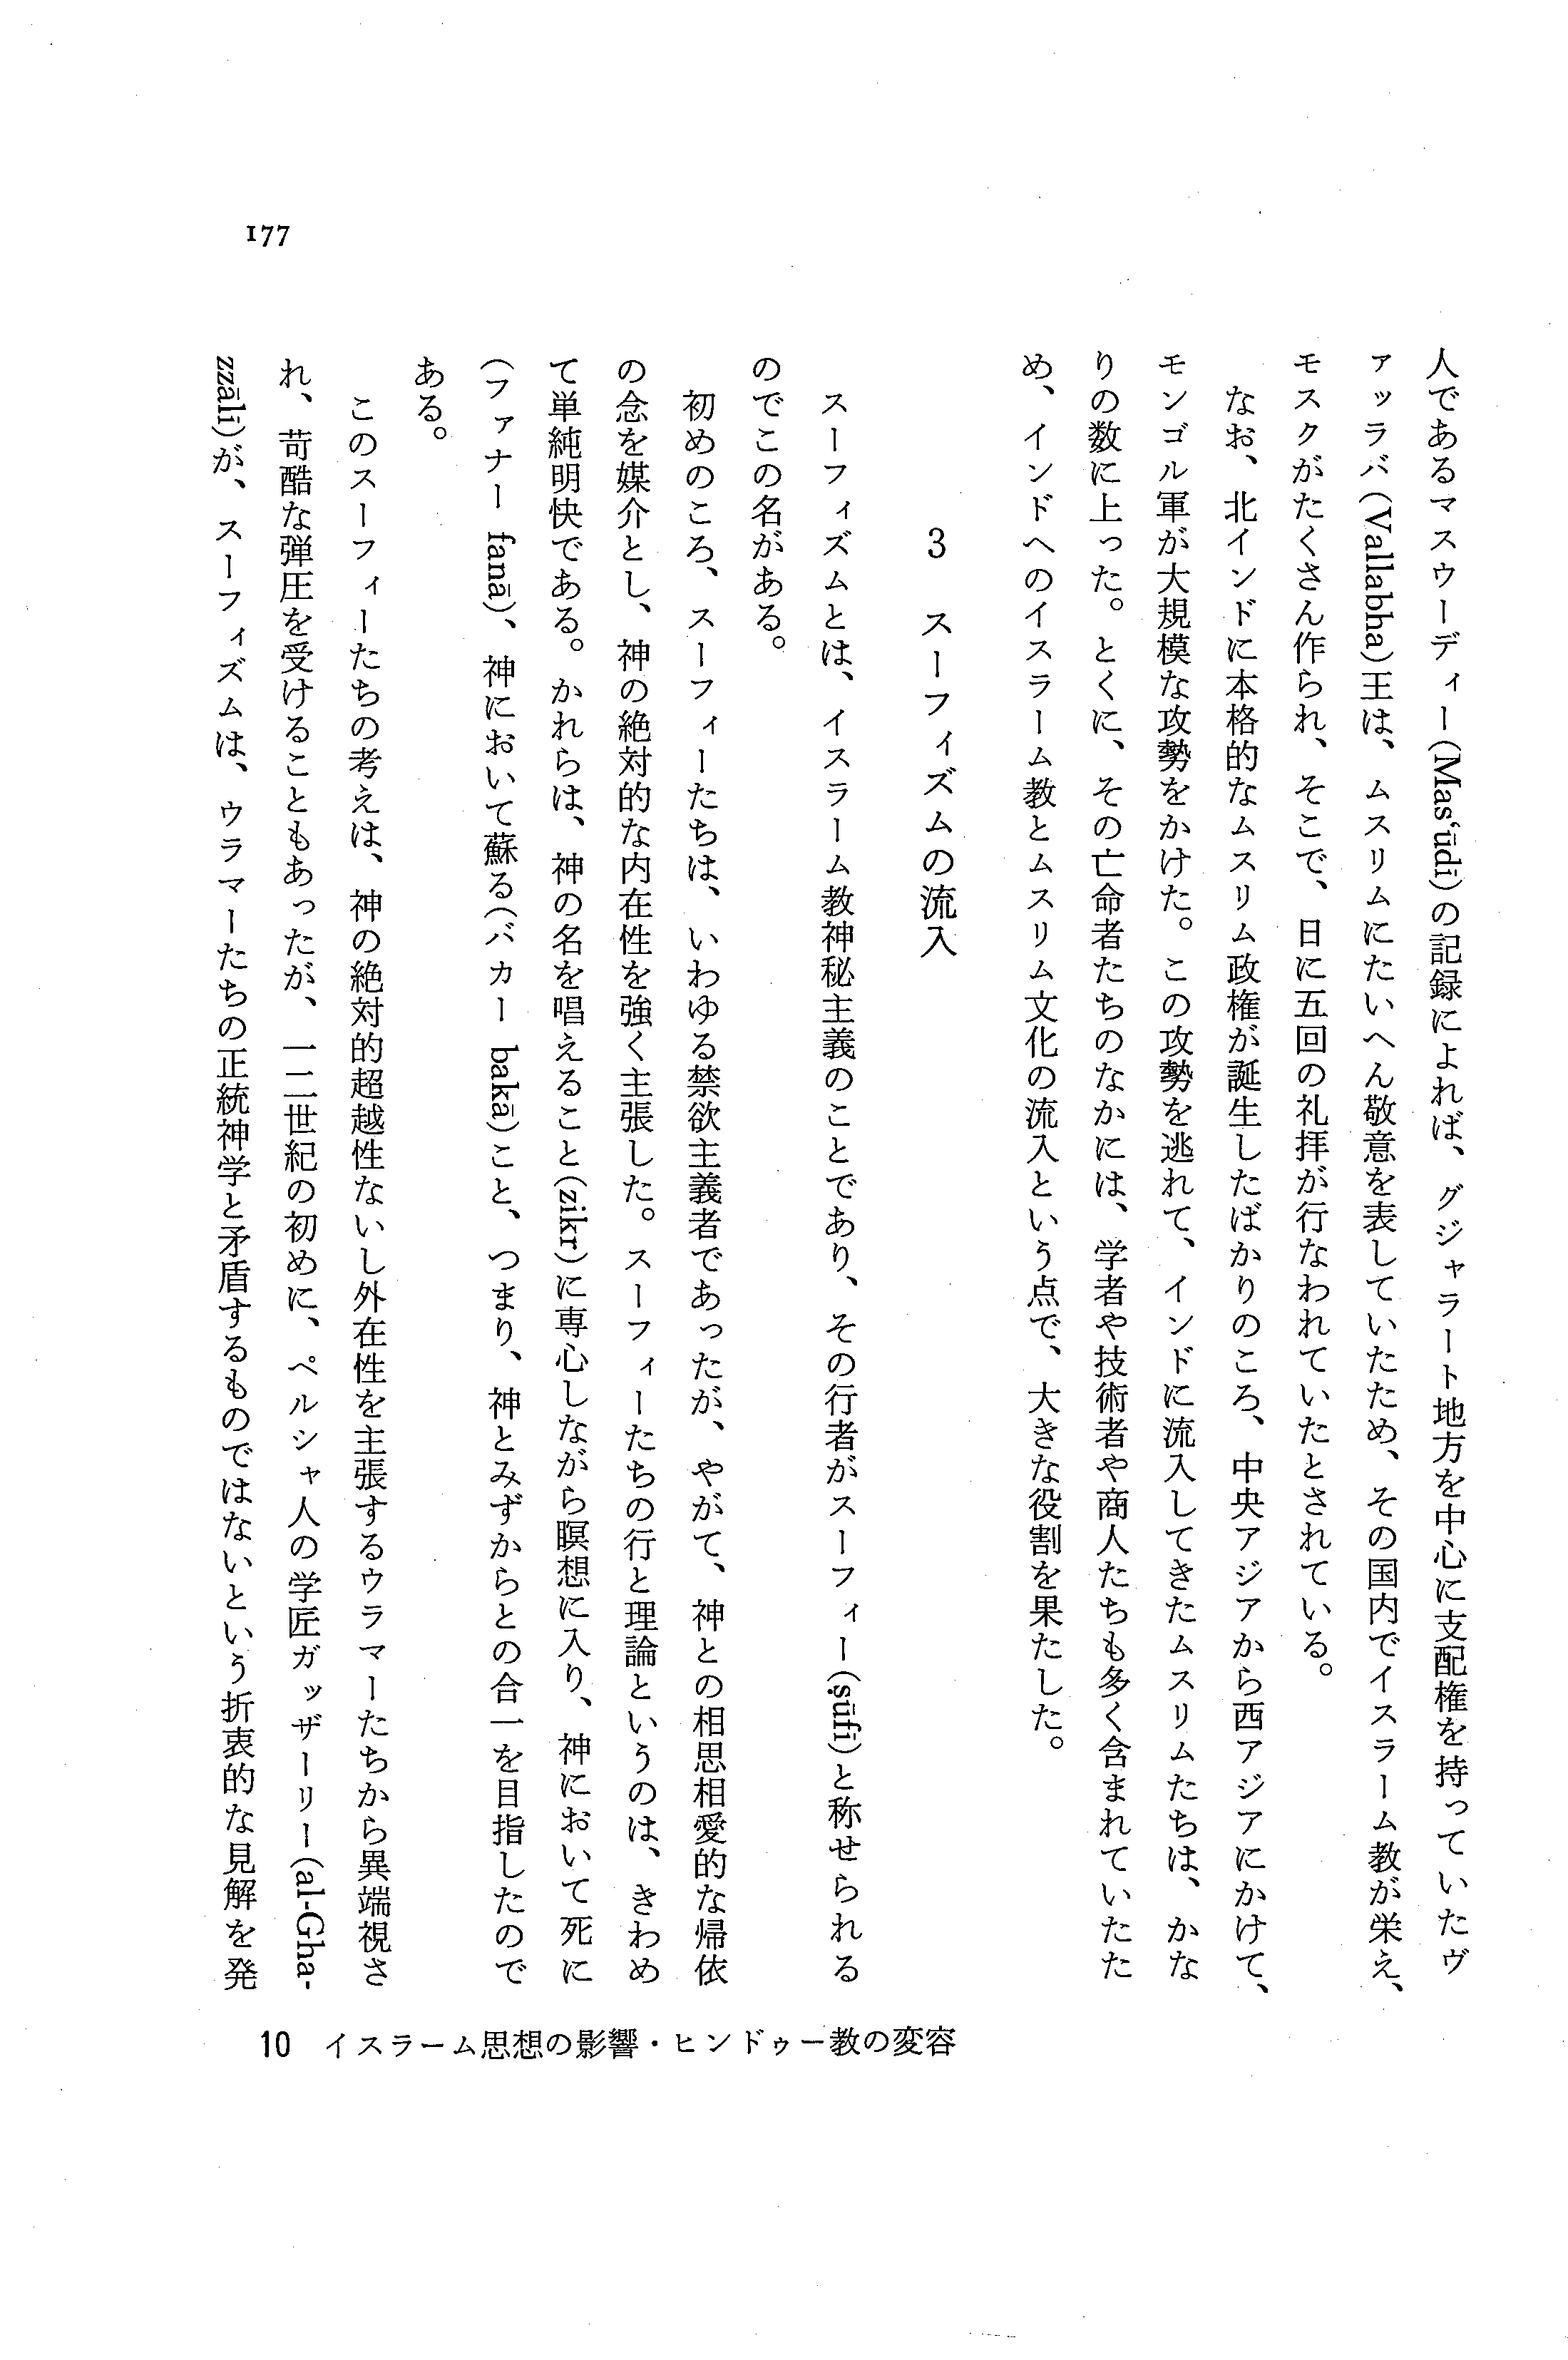 人であるマスウーディー(Mas‘ūdī)の記録によれば、グジャラート地方を中心に支配権を持っていたヴ
ァッラバ(Vallabha)王は、ムスリムにたいへん敬意を表していたため、その国内でイスラーム教が栄え、
モスクがたくさん作られ、そこで、日に五回の礼拝が行なわれていたとされている。
なお、北インドに本格的なムスリム政権が誕生したばかりのころ、中央アジアから西アジアにかけて、
モンゴル軍が大規模な攻勢をかけた。この攻勢を逃れて、インドに流入してきたムスリムたちは、かな
りの数に上った。とくに、その亡命者たちのなかには、学者や技術者や商人たちも多く含まれていたた
め、インドへのイスラーム教とムスリム文化の流入という点で、大きな役割を果たした。
3 スーフィズムの流入
スーフィズムとは、イスラーム教神秘主義のことであり、その行者がスーフィー(ṣūfī)と称せられる
のでこの名がある。
初めのころ、スーフィーたちは、いわゆる禁欲主義者であったが、やがて、神との相思相愛的な帰依
の念を媒介とし、神の絶対的な内在性を強く主張した。スーフィーたちの行と理論というのは、きわめ
て単純明快である。かれらは、神の名を唱えること(zikr)に専心しながら瞑想に入り、神において死に
(ファナー fanā)、神において蘇る(バカー bakā)こと、つまり、神とみずからとの合一を目指したので
ある。
このスーフィーたちの考えは、神の絶対的超越性ないし外在性を主張するウラマーたちから異端視さ
れ、苛酷な弾圧を受けることもあったが、一二世紀の初めに、ペルシャ人の学匠ガッザーリー(al-Gha-
zzālī)が、スーフィズムは、ウラマーたちの正統神学と矛盾するものではないという折衷的な見解を発
177
10 イスラーム思想の影響・ヒンドゥー教の変容